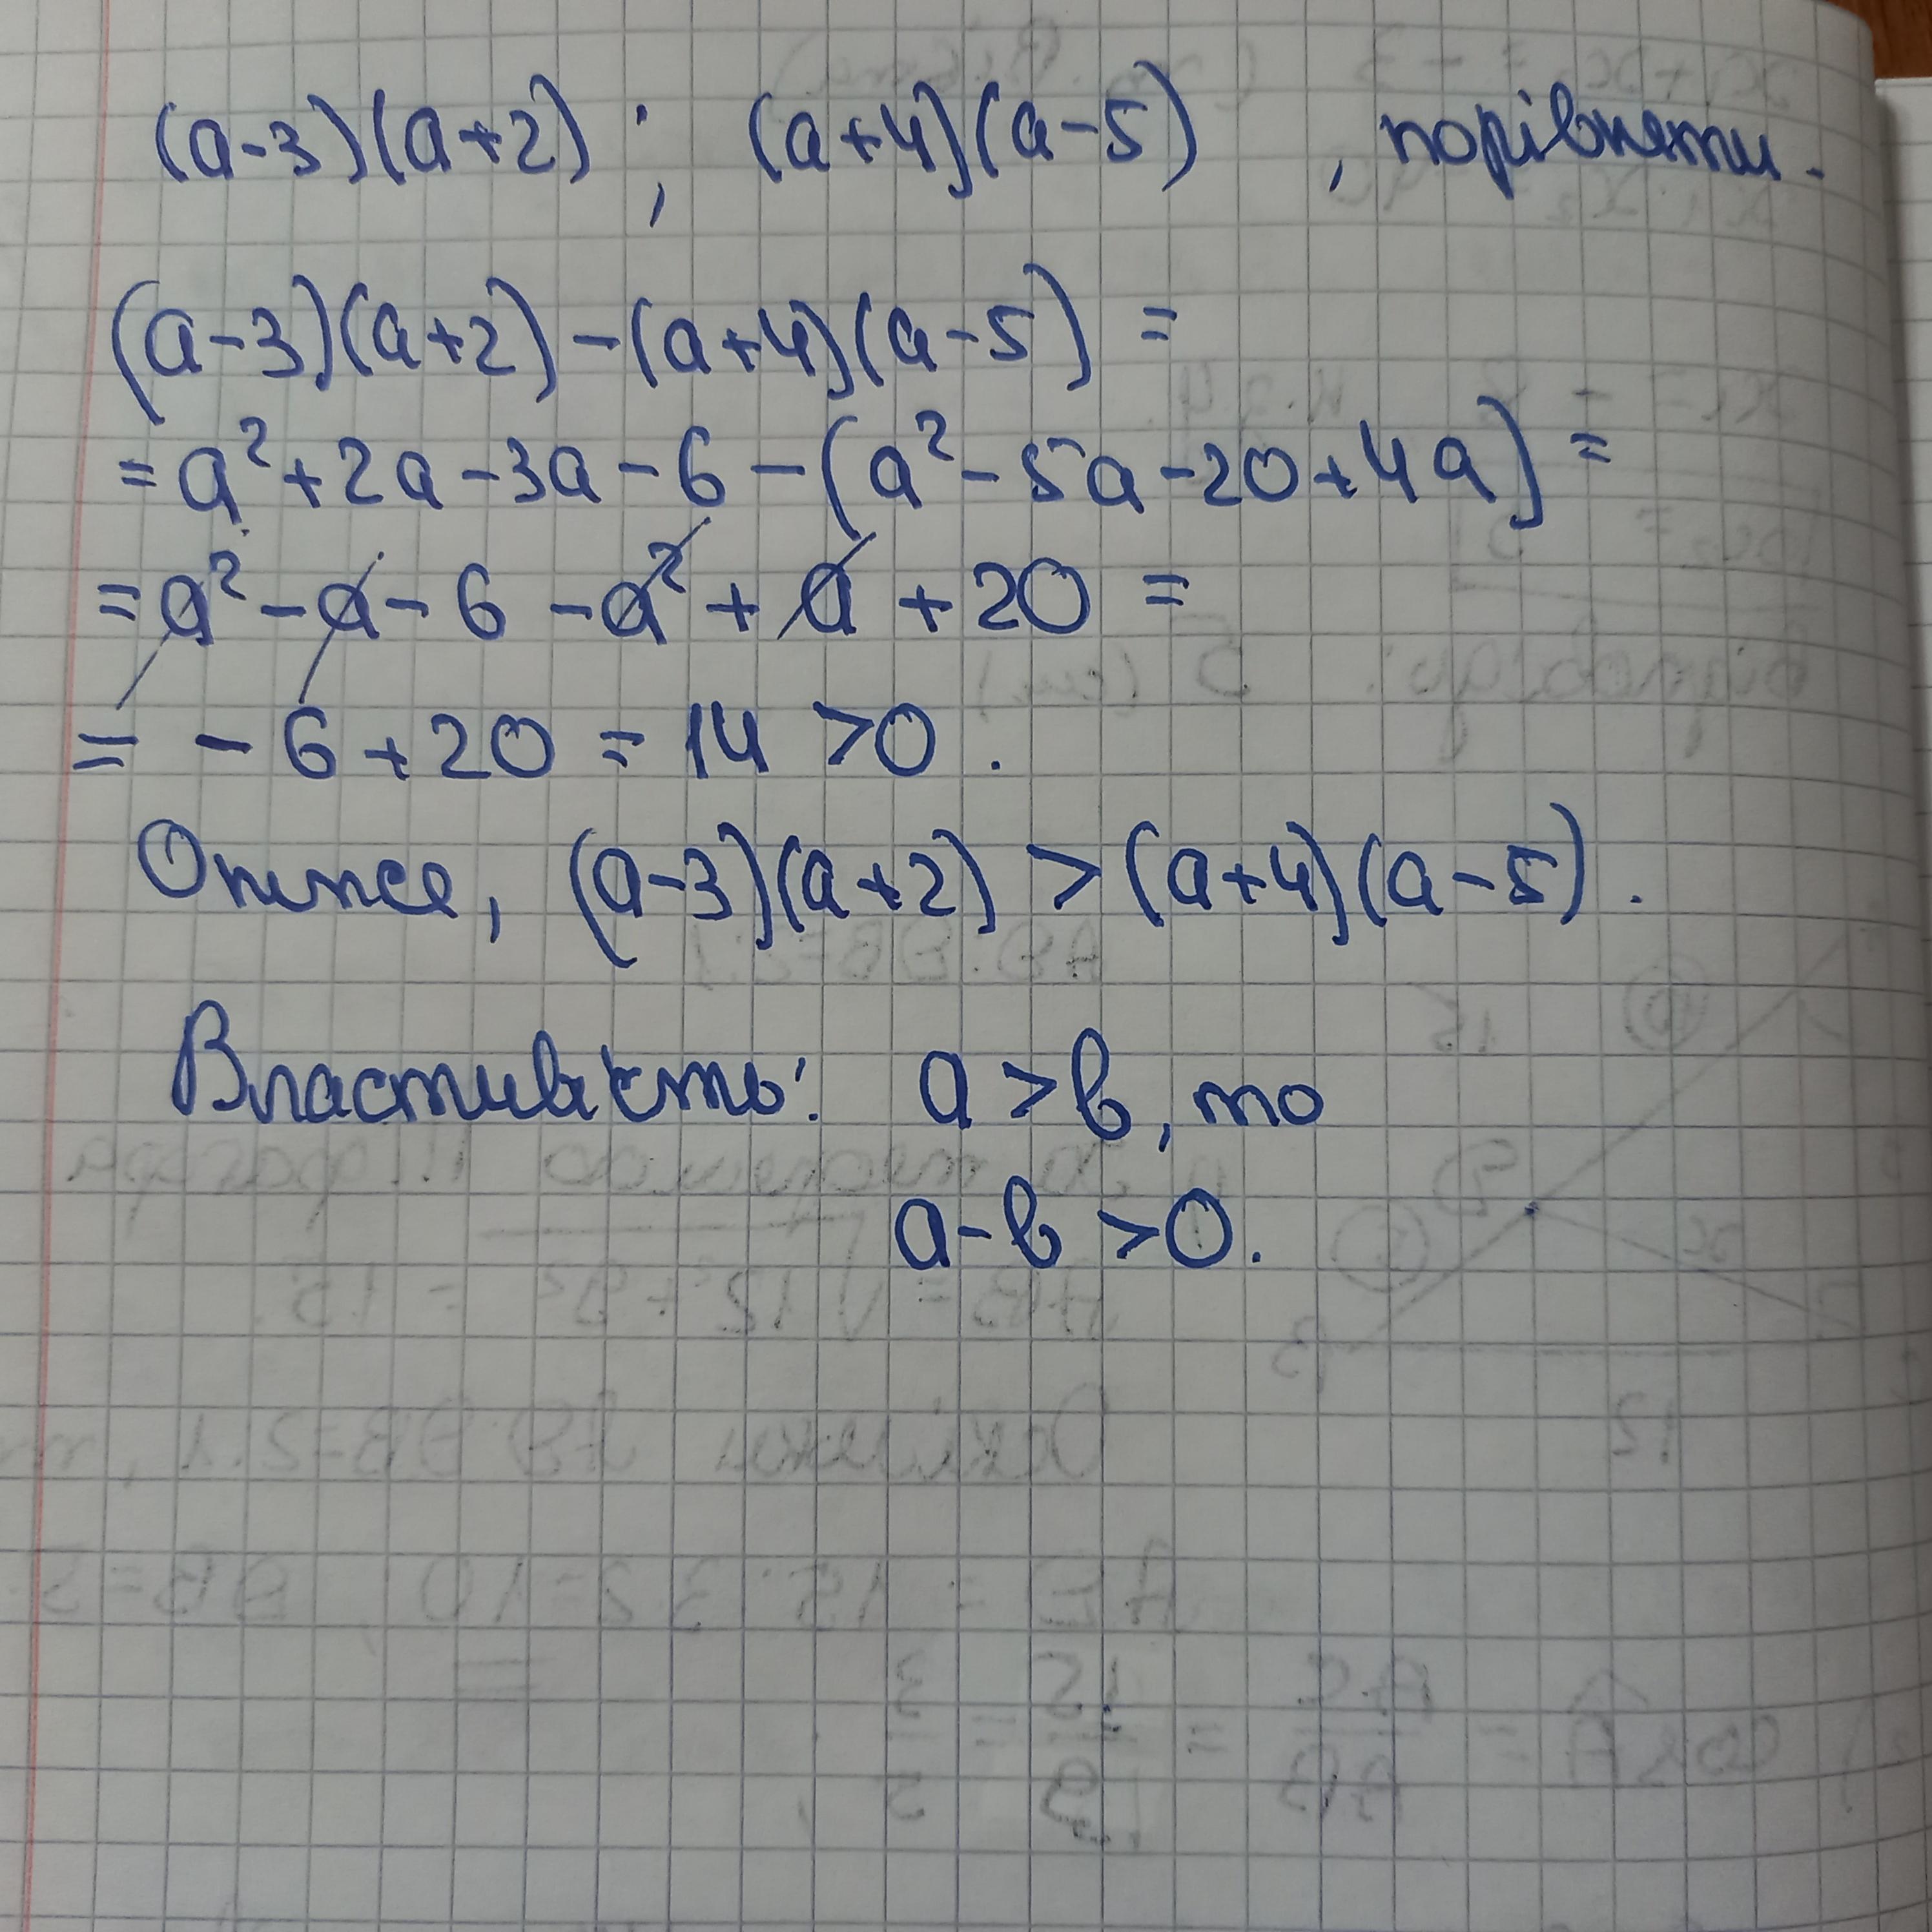 (a-3)(a+2) ; (a+4)(a-5) , порівняти.
(a-3)(a+2)-(a+4)(a-5) =
= a²+2a-3a-6-(a²-5a-20+4a) =
= a²-a-6-a²+a+20 =
= -6+20 = 14 >0 .
Отже, (a-3)(a+2) > (a+4)(a-5) .
Властивість: a > b, то
a-b >0.